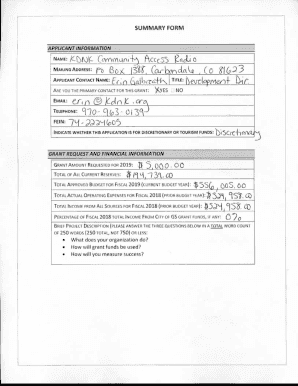 SUMMARY FORM
APPLICANT INFORMATION
NAME: KDNK Community Access Radio
MAILING ADDRESS: PO Box 1388, Carbondale, CO 81623
APPLICANT CONTACT NAME: Erin Galbreath TITLE: Development Dir.
ARE YOU THE PRIMARY CONTACT FOR THIS GRANT: YES NO
EMAIL: erin@kdnk.org
TELEPHONE: 970-963-0139
FEIN: 74-2224605
INDICATE WHETHER THIS APPLICATION IS FOR DISCRETIONARY OR TOURISM FUNDS: Discretionary
GRANT REQUEST AND FINANCIAL INFORMATION
GRANT AMOUNT REQUESTED FOR 2019: $5,000.00
TOTAL OF ALL CURRENT RESERVES: $194,739.00
TOTAL APPROVED BUDGET FOR FISCAL 2019 (CURRENT BUDGET YEAR): $556,005.00
TOTAL ACTUAL OPERATING EXPENSES FOR FISCAL 2018 (PRIOR BUDGET YEAR): $524,958.00
TOTAL INCOME FROM ALL SOURCES FOR FISCAL 2018 (PRIOR BUDGET YEAR): $524,958.00
PERCENTAGE OF FISCAL 2018 TOTAL INCOME FROM CITY OF GS GRANT FUNDS, IF ANY: 0%
BRIEF PROJECT DESCRIPTION (PLEASE ANSWER THE THREE QUESTIONS BELOW IN A TOTAL WORD COUNT
OF 250 WORDS (250 TOTAL, NOT 750) OR LESS:
• What does your organization do?
• How will grant funds be used?
• How will you measure success?